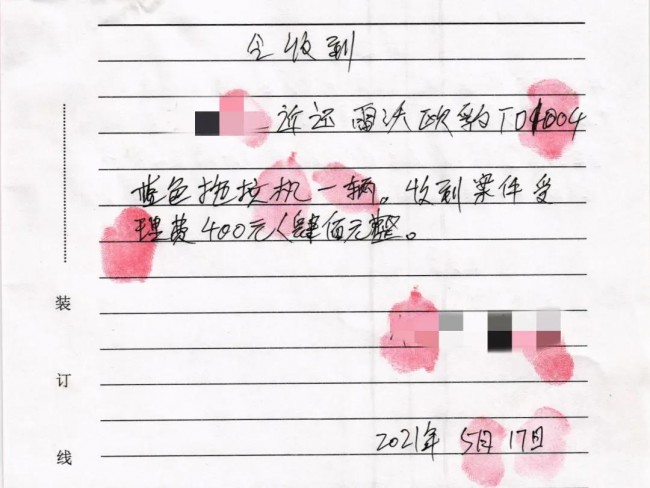 今收到
返还雷沃欧豹TD1004
蓝色拖拉机一辆。收到案件受
理费400元(肆佰元整。
2021年5月17日
装
订
线